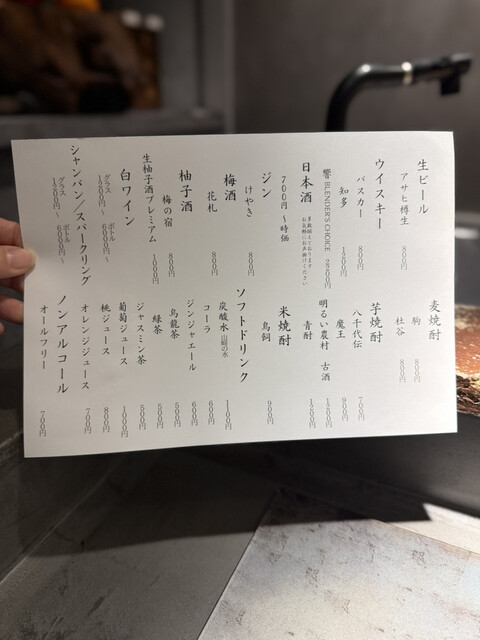 生ビール
アサヒ樽生 800円
ウイスキー
バスカー 800円
知多 1500円
響 BLENDER'S CHOICE 2800円
日本酒
700円〜時価
多数揃えております
お気軽にお声掛けください
ジン
けやき 800円
梅酒
花札 800円
柚子酒
梅の宿 800円
生柚子酒プレミアム 1000円
白ワイン
グラス 1200円〜
ボトル 6000円〜
シャンパン／スパークリング
グラス 1200円〜
ボトル 6000円〜
麦焼酎
駒 800円
杜谷 800円
芋焼酎
八千代伝 700円
魔王 900円
明るい農村 古酒 1200円
青酎 1200円
米焼酎
鳥飼 900円
ソフトドリンク
炭酸水 山崎の水 1101円
コーラ 600円
ジンジャエール 600円
烏龍茶 500円
緑茶 500円
ジャスミン茶 500円
葡萄ジュース 1000円
桃ジュース 800円
オレンジジュース 700円
ノンアルコール
オールフリー 700円